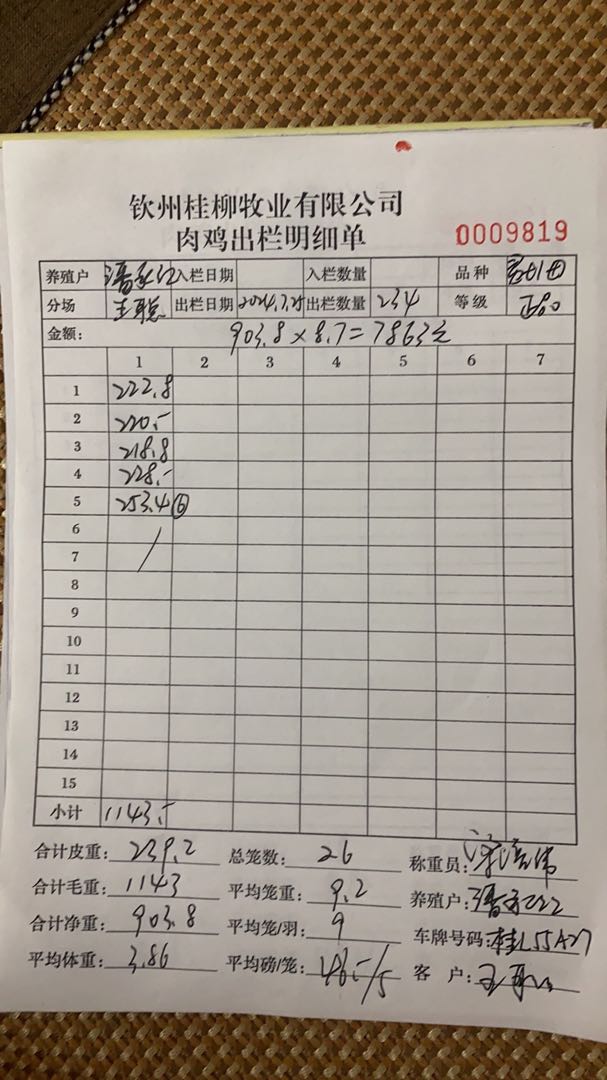 钦州桂柳牧业有限公司
肉鸡出栏明细单
0009819
养殖户 入栏日期 入栏数量 品种
分场 出栏日期 2024.7.25 出栏数量 234 等级 正品
金额: 903.8×8.7=7863元
1 2 3 4 5 6 7
1 222.8
2 220.-
3 218.8
4 228.-
5 253.4 ⑥
6
7 /
8
9
10
11
12
13
14
15
小计 1143.-
合计皮重: 239.2 总笼数: 26 称重员:
合计毛重: 1143 平均笼重: 9.2 养殖户:
合计净重: 903.8 平均笼/羽: 9 车牌号码: 桂L55A27
平均体重: 3.86 平均磅/笼: 46.-/5 客 户: